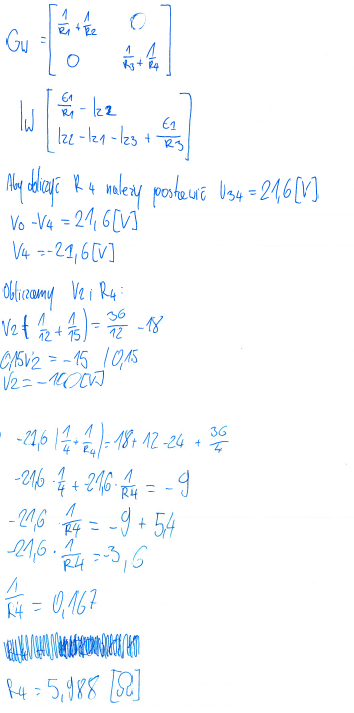 Gw = [ 1/R1 + 1/R2 0
0 1/R3 + 1/R4 ]
Iw [ E1/R1 - Iz2
Iz2 - Iz1 - Iz3 + E1/R3 ]
Aby obliczyć R4 należy postawić U34 = 21,6 [V]
V0 - V4 = 21,6 [V]
V4 = -21,6 [V]
Obliczamy V2 i R4:
V2 ( 1/12 + 1/15 ) = 36/12 - 18
0,15V2 = -15 / 0,15
V2 = -100 [V]
-21,6 ( 1/4 + 1/R4 ) = 18 + 12 - 24 + 36/4
-21,6 · 1/4 + -21,6 · 1/R4 = -9
-21,6 · 1/R4 = -9 + 5,4
-21,6 · 1/R4 = -3,6
1/R4 = 0,167
R4 = 5,988 [Ω]